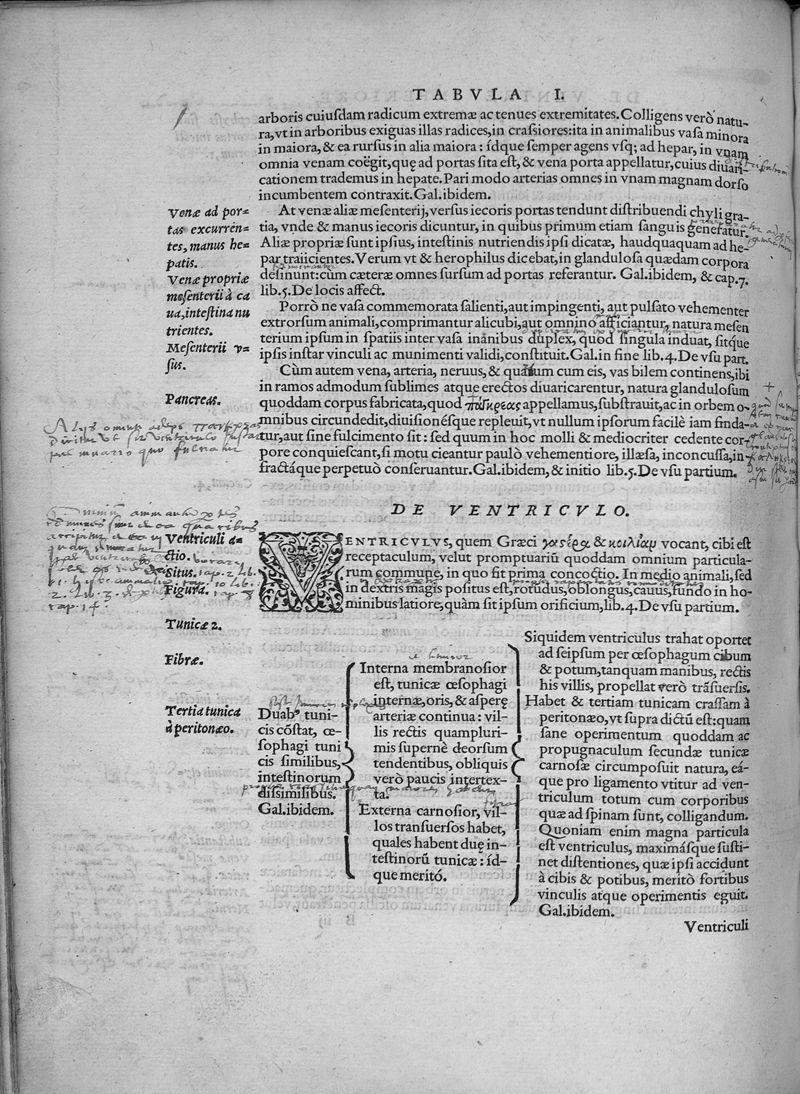 TABVLA I.
arboris cuiusdam radicum extremæ ac tenues extremitates. Colligens verò natu-
ra, vt in arboribus exiguas illas radices, in crassiores: ita in animalibus vasa minora
in maiora, & ea rursus in alia maiora : ídque semper agens vsq; ad hepar, in vnam
omnia venam coëgit, quę ad portas sita est, & vena porta appellatur, cuius diuari-
cationem trademus in hepate. Pari modo arterias omnes in vnam magnam dorso
incumbentem contraxit. Gal. ibidem.
Venæ ad por=
tas excurren=
tes, manus he=
patis.
At venæ aliæ mesenterij, versus iecoris portas tendunt distribuendi chyli gra-
tia, vnde & manus iecoris dicuntur, in quibus primum etiam sanguis generatur.
Aliæ propriæ sunt ipsius, intestinis nutriendis ipsi dicatæ, haudquaquam ad he-
par traiicientes. Verum vt & herophilus dicebat, in glandulosa quædam corpora
desinunt: cùm cæteræ omnes sursum ad portas referantur. Gal. ibidem, & cap. 7.
lib. 5. De locis affect.
Venæ propriæ
mesenterii à ca
ua, intestina nu
trientes.
Mesenterii v=
sus.
Porrò ne vasa commemorata salienti, aut impingenti, aut pulsato vehementer
extrorsum animali, comprimantur alicubi, aut omnino afficiantur, natura mesen
terium ipsum in spatiis inter vasa inanibus duplex, quod singula induat, sitque
ipsis instar vinculi ac munimenti validi, constituit. Gal. in fine lib. 4. De vsu part.
Pancreas.
Cùm autem vena, arteria, neruus, & quartum cum eis, vas bilem continens, ibi
in ramos admodum sublimes atque erectos diuaricarentur, natura glandulosum
quoddam corpus fabricata, quod πάγκρεας appellamus, substrauit, ac in orbem o-
mnibus circundedit, diuisionésque repleuit, vt nullum ipsorum facilè iam finda-
tur, aut sine fulcimento sit : sed quum in hoc molli & mediocriter cedente cor-
pore conquiescant, si motu cieantur paulò vehementiore, illæsa, inconcussa, in-
fractáque perpetuò conseruantur. Gal. ibidem, & initio lib. 5. De vsu partium.
DE VENTRICVLO.
Ventriculi a=
ctio.
Situs.
Figura.
VENTRICVLVS, quem Græci γαστέρα & κοιλίαμ vocant, cibi est
receptaculum, velut promptuariù quoddam omnium particula-
rum commune, in quo fit prima concoctio. In medio animali, sed
in dextris magis positus est, rotũdus, oblongus, cauus, fundo in ho-
minibus latiore, quàm sit ipsum orificium, lib. 4. De vsu partium.
Tunicæ 2.
Fibræ.
Tertia tunica
à peritonæo.
Duabꝰ tuni-
cis cõstat, œ-
sophagi tuni
cis similibus,
intestinorum
dissimilibus.
Gal. ibidem.
Interna membranosior
est, tunicæ œsophagi
internæ, oris, & asperę
arteriæ continua : vil-
lis rectis quampluri-
mis supernè deorsum
tendentibus, obliquis
verò paucis intertex-
ta.
Externa carnosior, vil-
los transuersos habet,
quales habent duę in-
testinorũ tunicæ : íd-
que meritó.
Siquidem ventriculus trahat oportet
ad seipsum per œsophagum cibum
& potum, tanquam manibus, rectis
his villis, propellat verò trãsuersis.
Habet & tertiam tunicam crassam à
peritonæo, vt supra dictũ est: quam
sane operimentum quoddam ac
propugnaculum secundæ tunicæ
carnosæ circumposuit natura, eá-
que pro ligamento vtitur ad ven-
triculum totum cum corporibus
quæ ad spinam sunt, colligandum.
Quoniam enim magna particula
est ventriculus, maximásque susti-
net distentiones, quæ ipsi accidunt
à cibis & potibus, meritò fortibus
vinculis atque operimentis eguit.
Gal. ibidem.
Ventriculi